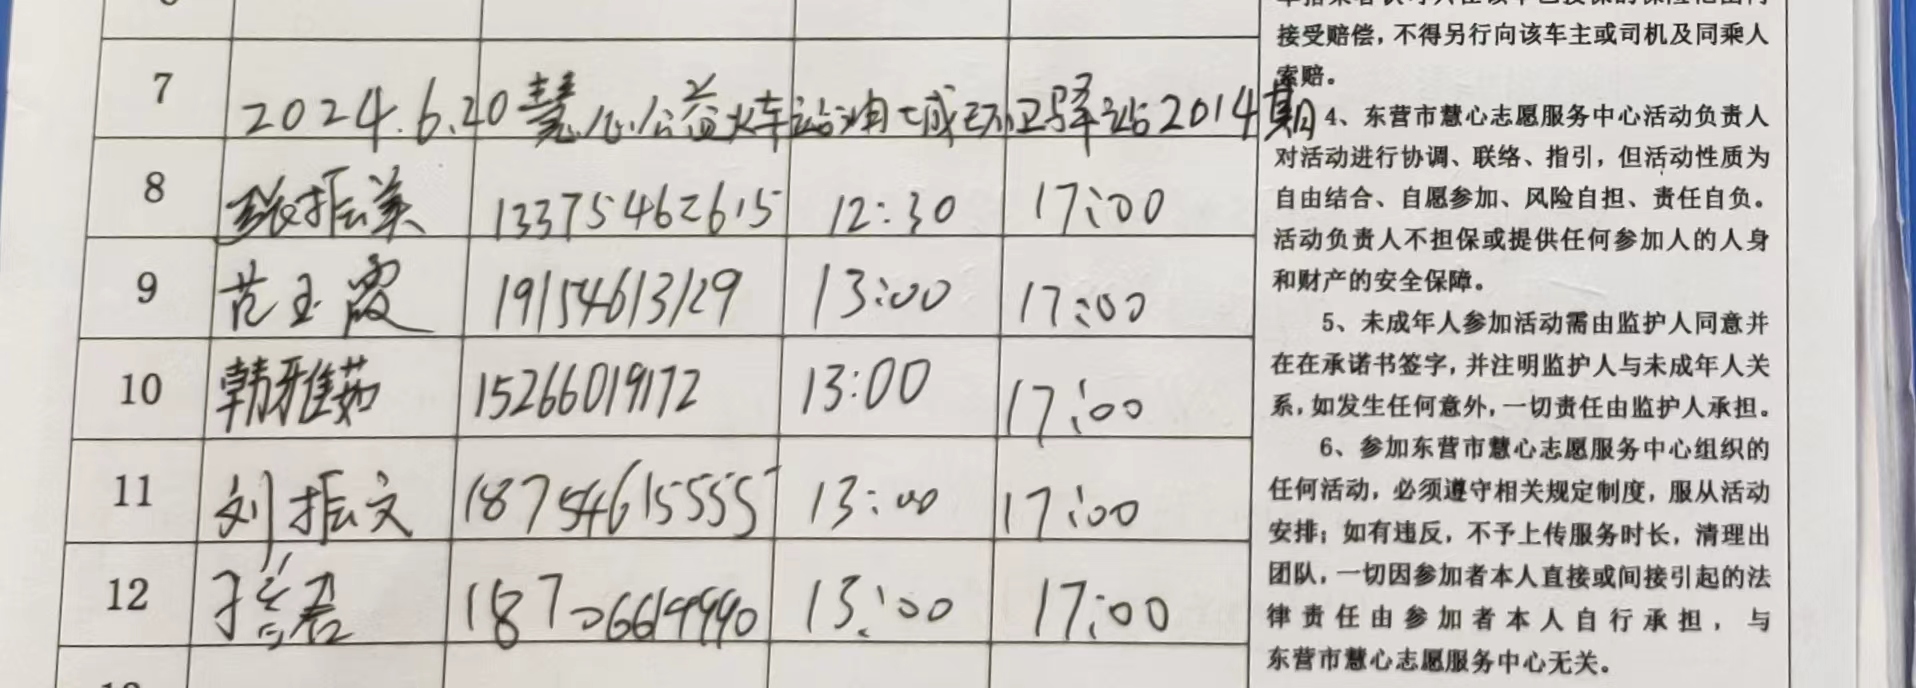 7 2024.6.20慧心公益火车站油城环卫驿站2014期
8 张振美 13375462615 12:30 17:00
9 范玉霞 19154613129 13:00 17:00
10 韩雅茹 15266019172 13:00 17:00
11 刘振文 18754615555 13:00 17:00
12 18706614990 13:00 17:00
接受赔偿，不得另行向该车主或司机及同乘人
索赔。
4、东营市慧心志愿服务中心活动负责人
对活动进行协调、联络、指引，但活动性质为
自由结合、自愿参加、风险自担、责任自负。
活动负责人不担保或提供任何参加人的人身
和财产的安全保障。
5、未成年人参加活动需由监护人同意并
在在承诺书签字，并注明监护人与未成年人关
系，如发生任何意外，一切责任由监护人承担。
6、参加东营市慧心志愿服务中心组织的
任何活动，必须遵守相关规定制度，服从活动
安排；如有违反，不予上传服务时长，清理出
团队，一切因参加者本人直接或间接引起的法
律责任由参加者本人自行承担，与
东营市慧心志愿服务中心无关。